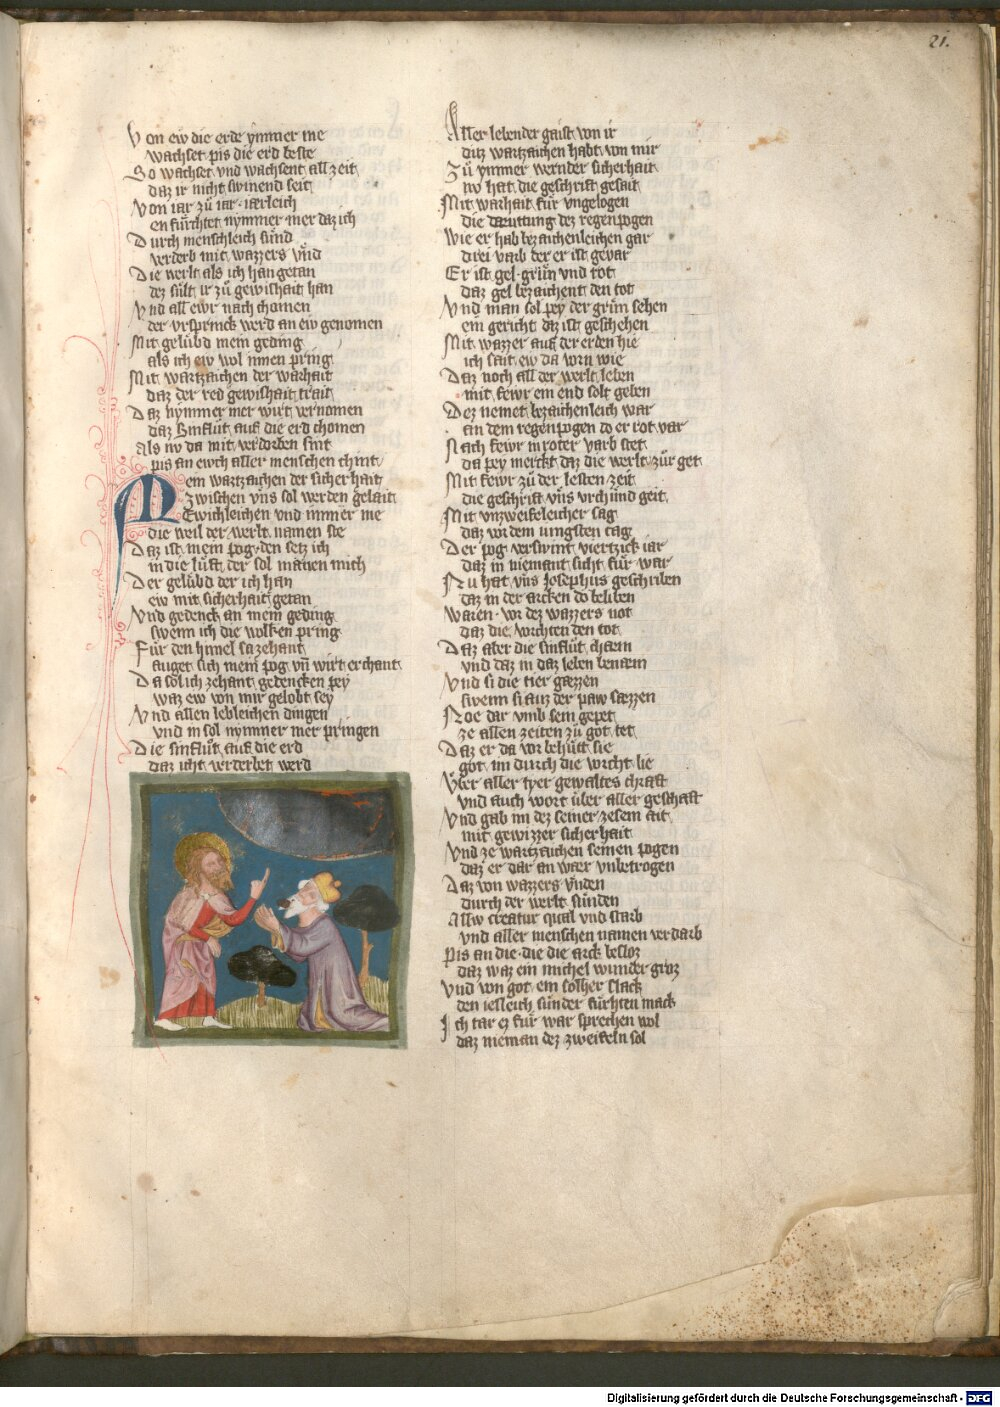 21.
Von ew die erde ymmer me
wachset pis die erd beste
So wachset vnd wachsent all zeit
daz ir nicht swinend seit
Von iar zů iar iærleich
en fürchtet nymmer mer daz ich
Durch menschleich sünd
verderb mit wazzers vnd
Die werlt als ich han getan
dez sült ir zů gewishait han
Vnd all ewr nach chomen
der vrsprinck werd an ew genomen
Mit gelübd mein geding
als ich ew wol innen pring
Mit wartzaichen der warhait
daz der red gewishait trait
Daz nymmer mer wirt vernomen
daz Sinflůt auf die erd chomen
Als nv da mit verdorben sint
pis an ewch aller menschen chint
Dem wartzaichen der sicherhait
Zwischen vns sol werden gelait
Ewichleichen vnd immer me
die weil der werlt namen ste
Daz ist mein pog den setz ich
in die lüft der sol manen mich
Der gelübd der ich han
ew mit sicherhait getan
Vnd gedenck an mein geding
swenn ich die wolken pring
Für den himel sa zehant
auget sich mein pog vñ wirt erchant
Da sol ich zehant gedencken pey
waz ew von mir gelobt sey
Vnd allen lebleichen dingen
vnd in sol nymmer mer pringen
Die sinflůt auf die erd
daz icht verderbet werd
Aller lebender gaist von ir
ditz wartzaichen habt von mir
Zů ymmer wernder sicherhait
nv hat die geschrift gesait
Mit warhait für vngelogen
die dæuttung dez regenpogen
Wie er hab bezaichenleichen gar
drei varb der er ist gevar
Er ist gel grün vnd rot
daz gel bezaichent den tot
Vnd man sol pey der grün sehen
ein gericht daz ist geschehen
Mit wazzer auf der erden hie
ich sait ew da vorn wie
Daz noch all der werlt leben
mit fewr ein end solt geben
Dez nemet bezaichenleich war
an dem regenpogen do er rot var
Nach fewr in roter varb stet
da pey merckt daz die werlt zürget
Mit fewr zů der lesten zeit
die geschrift vns vrchünd geit
Mit vnzweifeleicher sag
daz vor dem iungsten tag
Der pog verswint viertzick iar
daz in niemant sicht für war
Nu hat vns Josephus geschriben
daz in der arcken do beliben
Waren vor dez wazzers not
daz die vorchten den tot
Daz aber die sinflůt chæm
vnd daz in daz leben benæm
Vnd si die tier gæzzen
swenn si auz der paw sæzzen
Noe dar vmb sein gepet
ze allen zeiten zů got tet
Daz er da vor behůt sie
got im durch die vorcht lie
Vber aller tyer gewaltes chraft
vnd auch wort über aller geschaft
Vnd gab im dez seiner zesem ait
mit gewizzer sicherhait
Vnd ze wartzaichen seinen pogen
daz er dar an wær vnbetrogen
Daz von wazzers vnden
durch der werlt sünden
Allw creatur qual vnd starb
vnd aller menschen namen verdarb
Pis an die die die arck besloz
daz waz ein michel wunder groz
Vnd von got ein solher slack
den ielleich sünder fürhten mack
Ich tar ez für war sprechen wol
daz nieman dez zweifeln sol
Digitalisierung gefördert durch die Deutsche Forschungsgemeinschaft - DFG